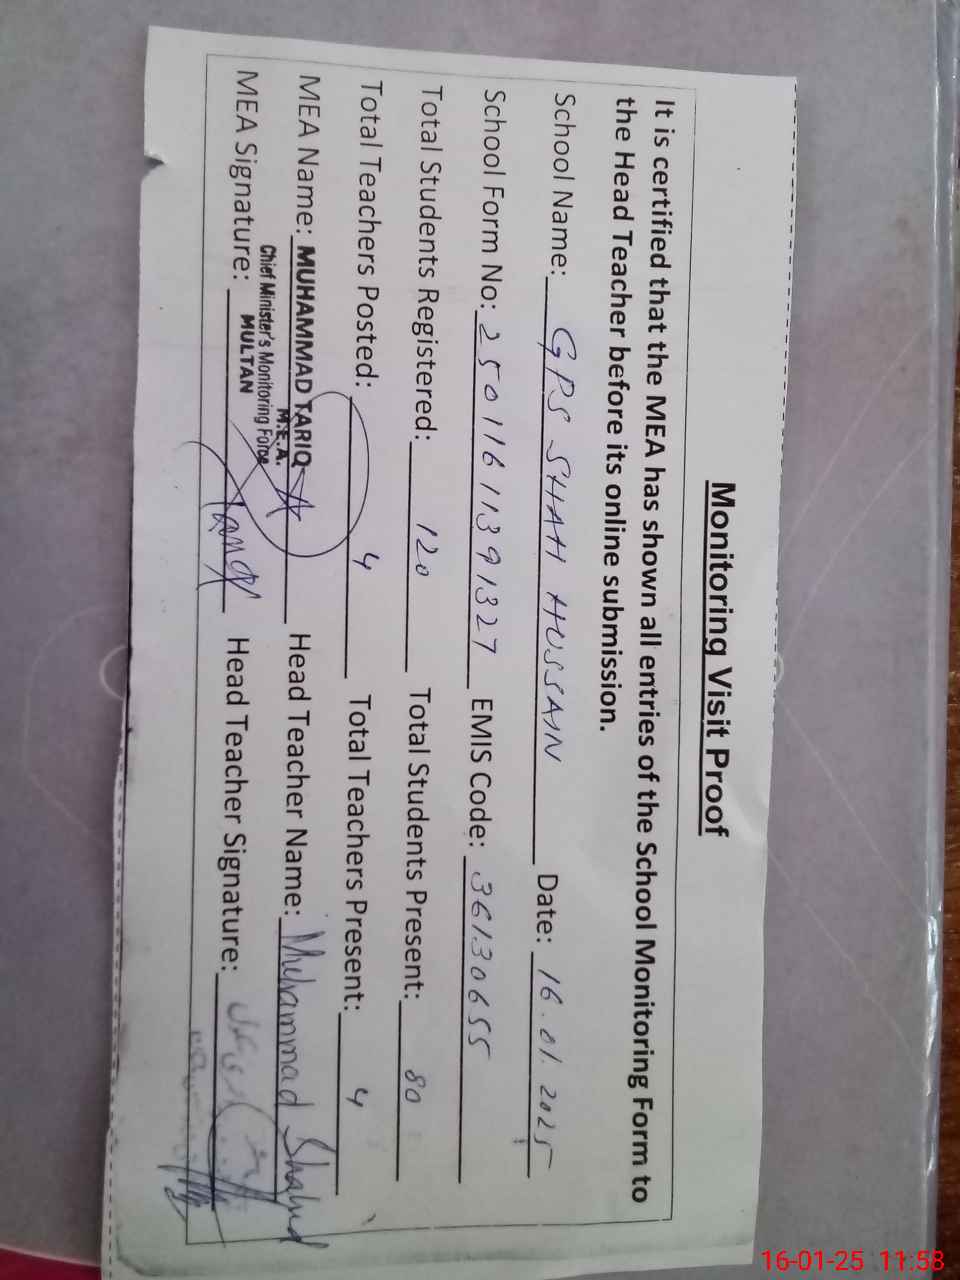 Monitoring Visit Proof
It is certified that the MEA has shown all entries of the School Monitoring Form to
the Head Teacher before its online submission.
School Name: GPS SHAH HUSSAIN Date: 16.01.2025
School Form No: 25011611391327 EMIS Code: 36130655
Total Students Registered: 120 Total Students Present: 80
Total Teachers Posted: 4 Total Teachers Present: 4
MEA Name: MUHAMMAD TARIQ Head Teacher Name: Muhammad Shahid
M.E.A.
Chief Minister's Monitoring Force
MULTAN
MEA Signature: Head Teacher Signature:
16-01-25 11:58